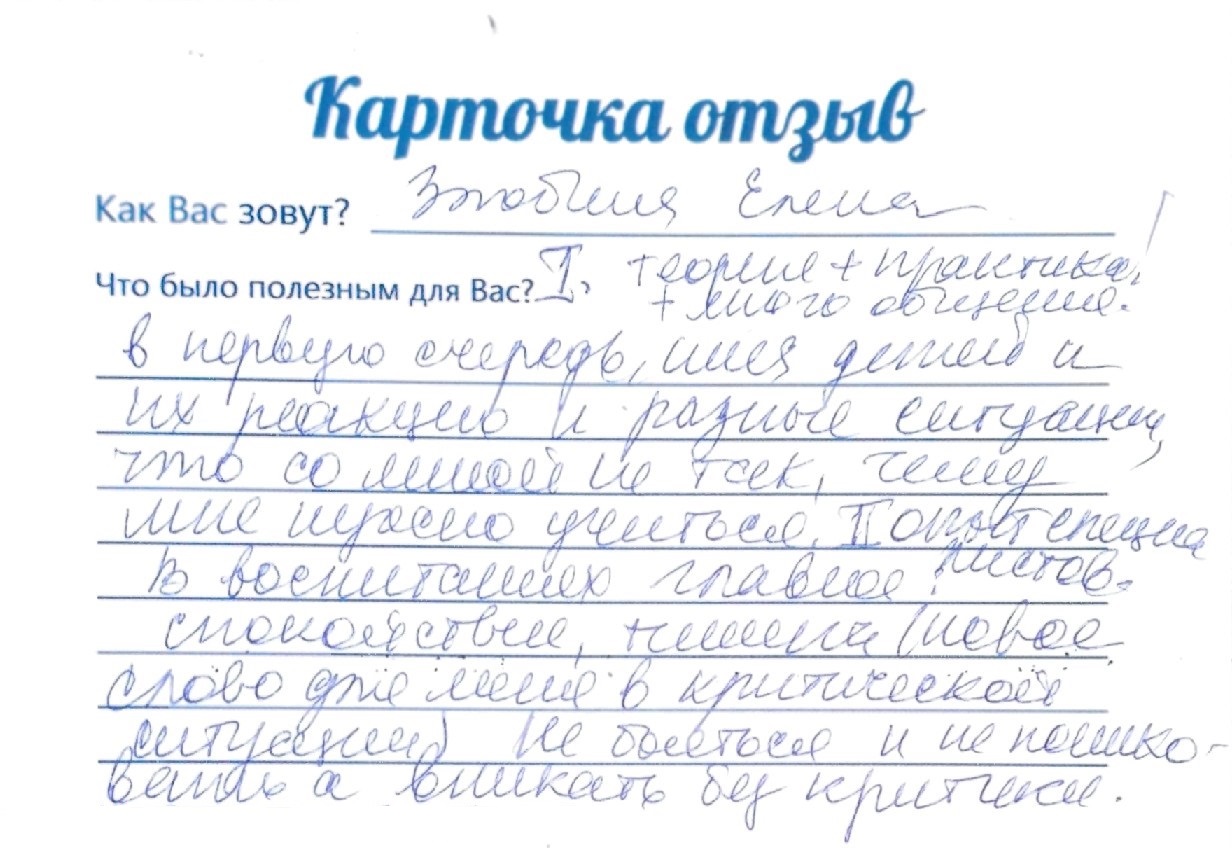 Карточка отзыв
Как Вас зовут? Злобина Елена
Что было полезным для Вас? I, теория + практика!
+ много общения.
в первую очередь, имея детей и
их реакцию и разные ситуации,
что со мной не так, чему
мне нужно учиться. II опыт специа
листов.
В воспитаниях главное
спокойствие, тишина (новое
слово для меня в критической
ситуации) Не бояться и не панико-
вать а вникать без критики.